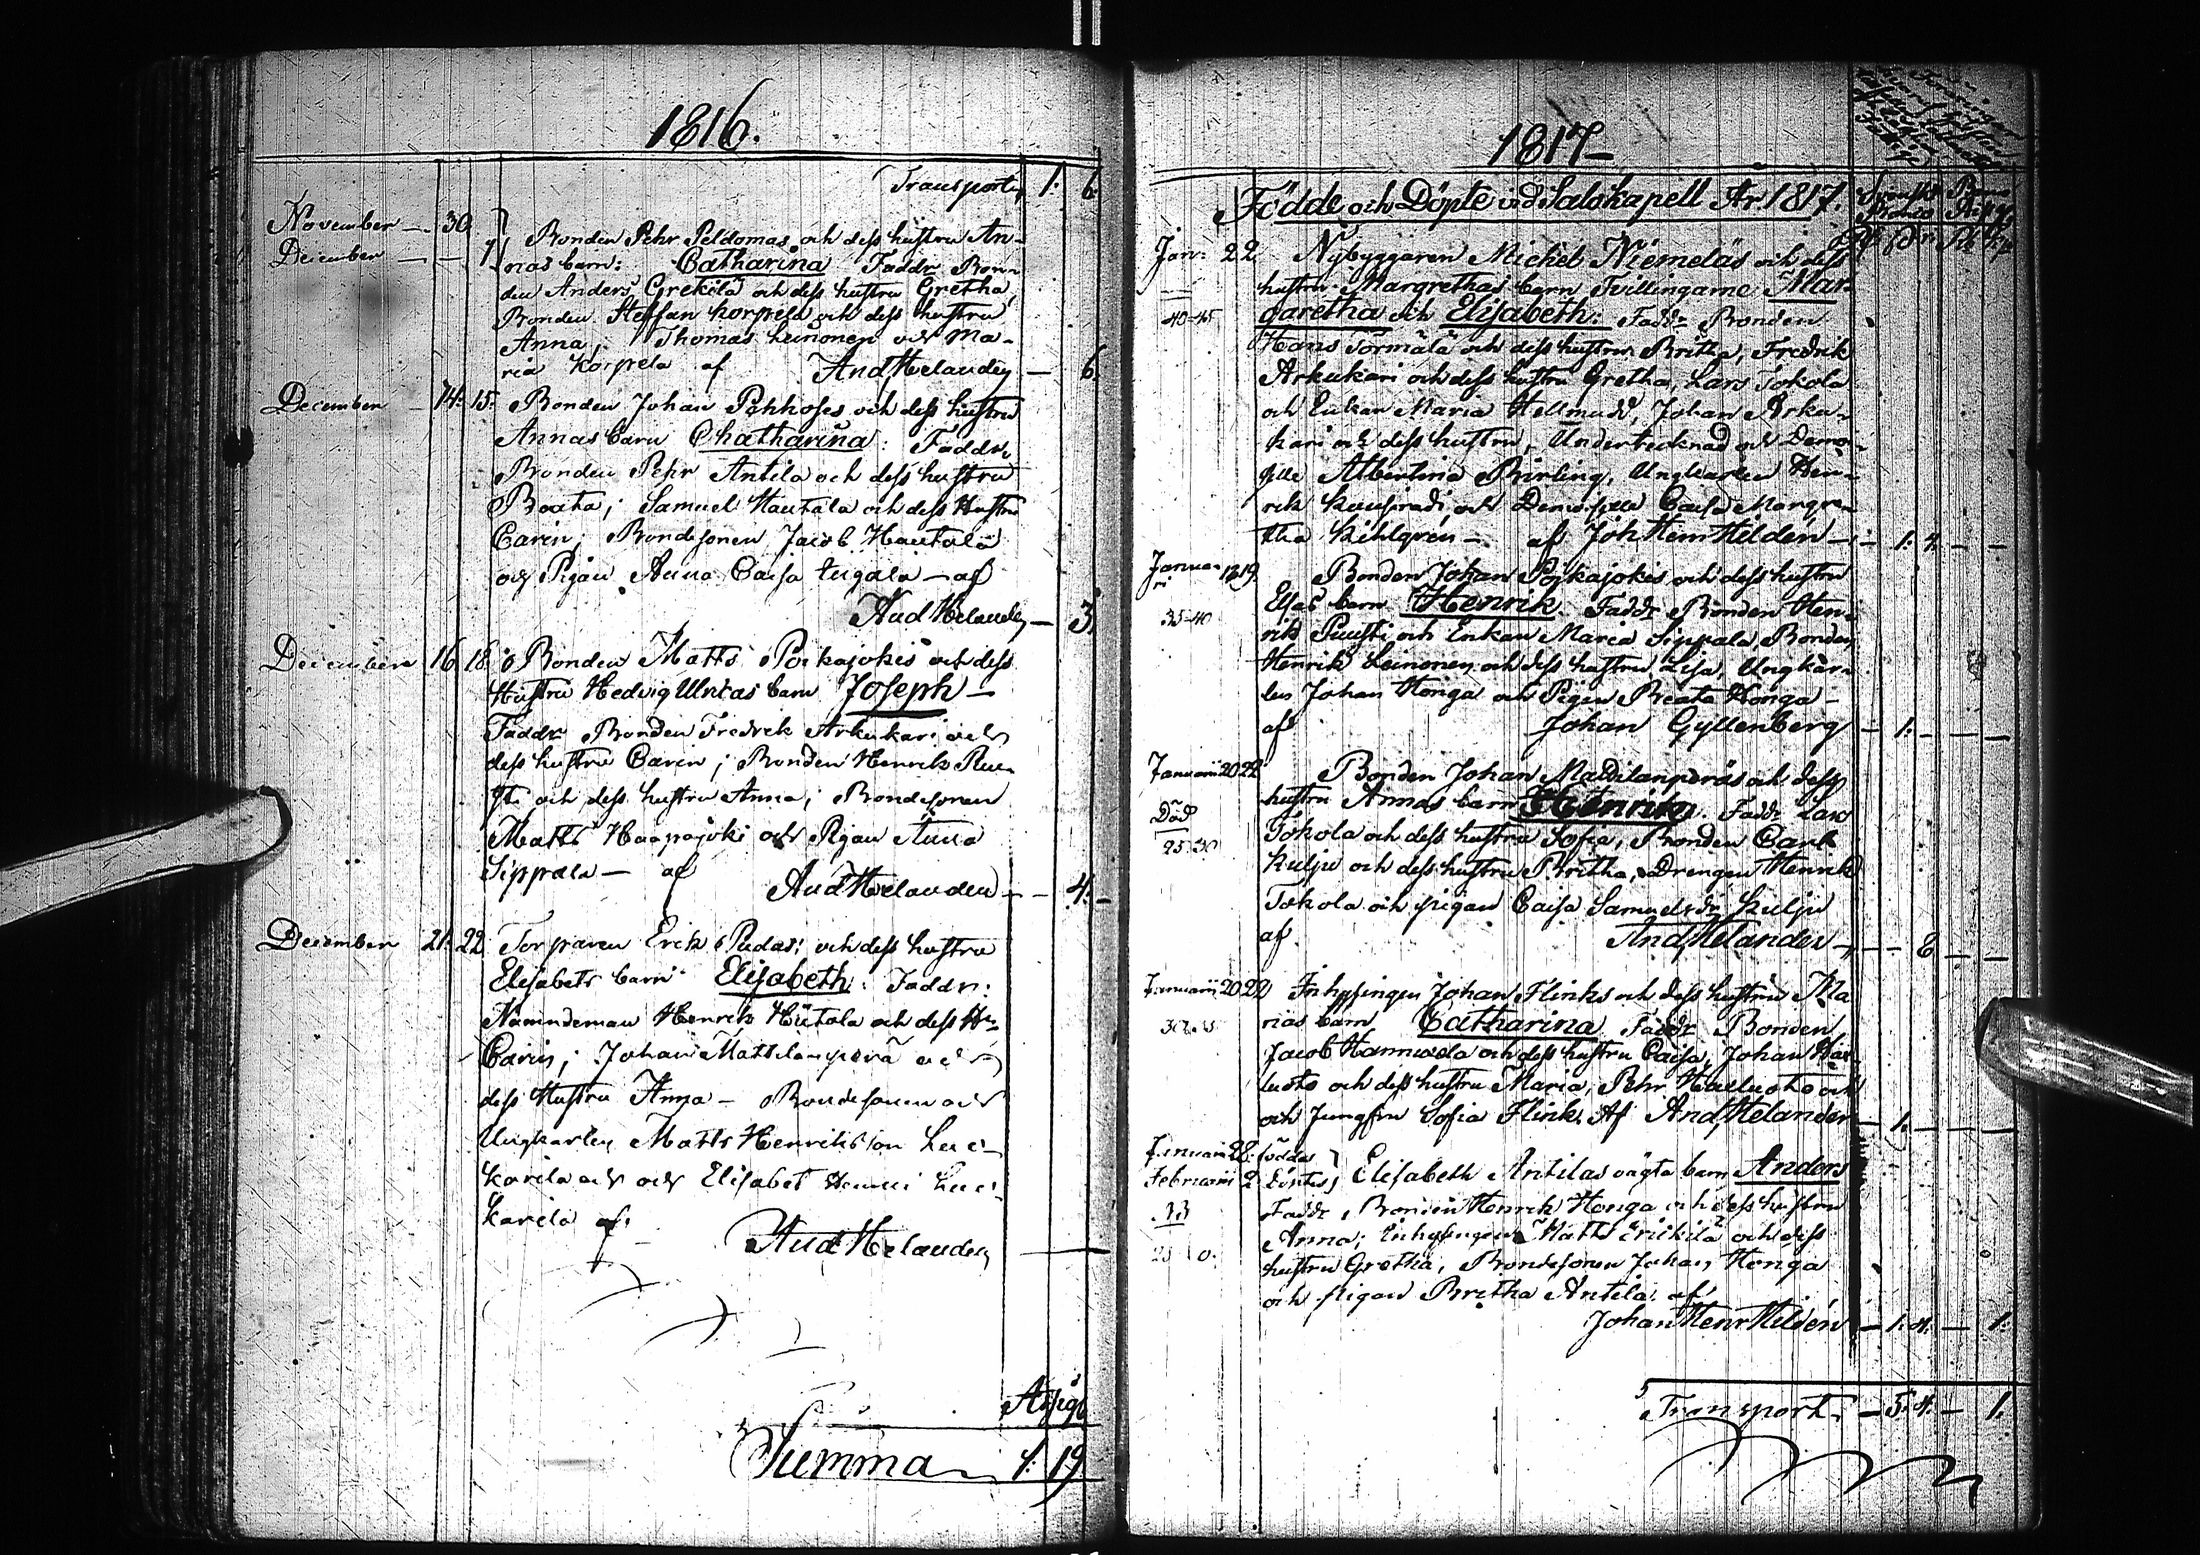 1816.
Transport 1: 6.
November 30
December 1 Bonden Pehr Peldomas och dess hustru An-
nas barn: Catharina Faddr Bon-
den Anders Grekilä och dess hustru Gretha,
Bonden Steffan Korpela och dess hustru
Anna; Thomas Leinonen och Ma-
ria Korpela af And Helander — 6.
December 14. 15. Bonden Johan och dess hustru
Annas barn Chatharina: Faddr
Bonden Pehr Antila och dess hustru
Beata; Samuel Hautala och dess Hustru
Carin; Bondesonen Jacob Hautala
och Pigan Anna Caisa — af
And Helander — 3.
December 16 18 Bonden Matts Poikajokis och dess
Hustru Hedvig Ulricas barn Joseph —
Faddr Bonden Fredrik Arkukari och
dess hustru Carin; Bonden Henrik Puu-
sti och dess hustru Anna; Bondesonen
Matts Haapajoki och Pigan Anna
Sippala — af
And Helander — 4. —
December 21. 22 Torparen Erick Pudas: och dess hustru
Elisabets barn Elisabeth: Faddr:
Nämndeman Henrik Hütola och dess Hu
Carin; Johan Mattilanperä och
dess Hustru Anna — Bondesonen och
Ungkarlen Matts Henriksson
och Elisabet
af:
And Helander
Assign
Summa 1: 19
1817—
Födde och Döpte vid Salo kapell År 1817.
Jan: 22 Nybyggaren Michel Niemeläs och dess
hustru Margrethas barn Tvillingarne Mar-
40-45 garetha och Elisabeth: Faddr Bonden
Hans Törmälä och dess hustru Britha, Fredrik
Arkukari och dess hustru Gretha, Lars Tokola
och Enkan Maria Hellmudd, Johan Arku-
kari och dess hustru, Undertecknad och Demoi-
selle Albertina Birling, Ungkarlen Hen-
rik och Demoiselle Caisa Margre-
tha Kihlgrén — af Joh Henr Heldén — 1: 4. — —
Januari 19 Bonden Johan Poikajokis och dess hustru
Elsas barn Henrik. Faddr Bonden Hen-
35-40 rik Puusti och Enkan Maria Sippala, Bonden
Henrik Leinonen och dess hustru Lisa, Ungkar-
len Johan Honga och Pigan Beata Honga —
af Johan Gyllenberg — 1: — — —
Januarii 20 22 Bonden Johan Mattilanperäs och dess
hustru Annas barn Henrik. Faddr Lars
Död Tokola och dess hustru Sofia, Bonden Carl
25 30 Kulju och dess hustru Britha, Drengen Henrik
Tokola och pigan Caisa Samuelsdr Kulju
af. And, Helander — — 8. — —
Januarii 20 22 Inhysingen Johan Flinks och dess hustru Ma
rias barn Catharina Faddr Bonden
Jacob Hannuxela och dess hustru Caisa, Johan
och dess hustru Maria, Pehr och
och Jungfru Sofia Flink. Af And, Helander — 1. — — —
Januarii 28. födda
Februarii 2 döptes } Elisabeth Antilas oägta barn Anders
Faddr, Bonden Henrik Honga och dess hustru
Anna; Inhysingen Matts och dess
hustru Gretha, Bondesonen Johan Honga
och pigan Britha Antila. af
Johan Henr Heldén — 1: 4: — 1:
Transport — 5: 4. — 1.